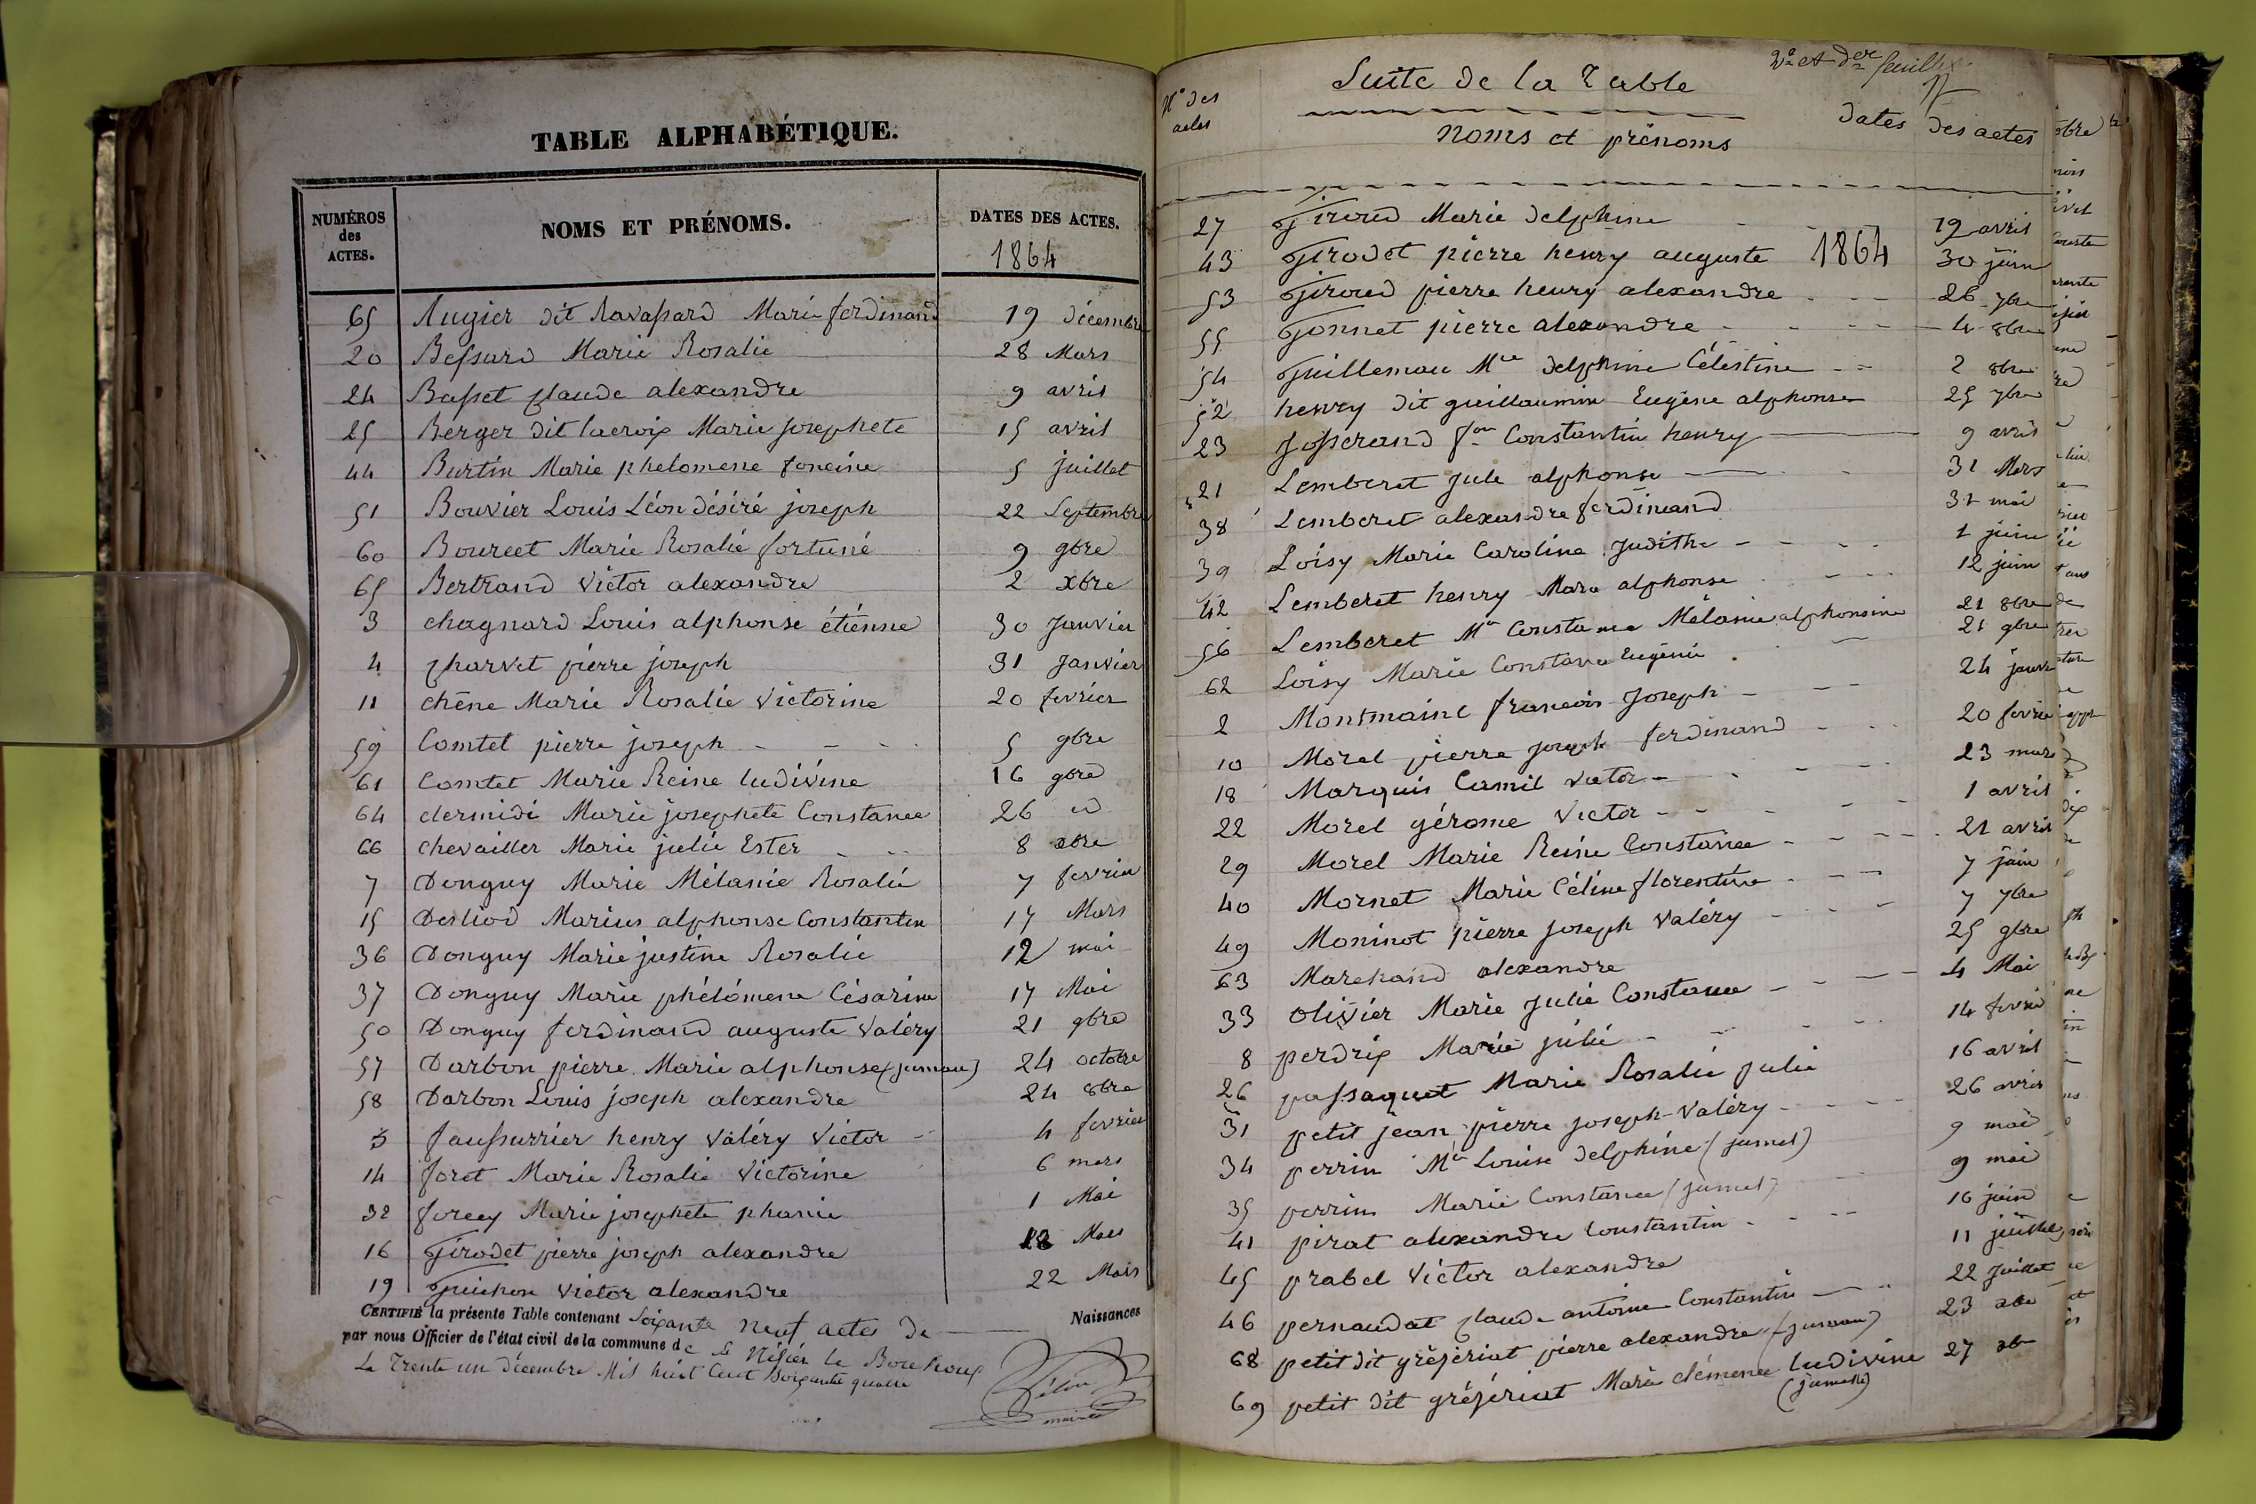 TABLE ALPHABÉTIQUE.
NUMÉROS des ACTES. NOMS ET PRÉNOMS. DATES DES ACTES.
1864
65 Augier dit Ravassard Marie ferdinand 19 décembre
20 Bessard Marie Rosalie 28 Mars
24 Basset claude alexandre 9 avril
25 Berger dit lacroix Marie josephete 15 avril
44 Burtin Marie phelomene foncine 5 juillet
51 Bouvier Louis Léon désiré joseph 22 Septembre
60 Bourcet Marie Rosalie fortuné 9 9bre
65 Bertrand victor alexandre 2 xbre
3 chagnard Louis alphonse étienne 30 Janvier
4 charvet pierre joseph 31 Janvier
11 chêne Marie Rosalie Victorine 20 fevrier
59 Comtet pierre joseph 5 9bre
61 Comtet Marie Reine ludivine 16 9bre
64 clermidi Marie josephete Constance 26 id
66 chevailler Marie julie Ester 8 xbre
7 Donguy Marie Mélanie Rosalie 7 fevrier
15 Desliod Marius alphonse Constantin 17 Mars
36 Donguy Marie justine Rosalie 12 mai
37 Donguy Marie phélomene Césarine 17 Mai
50 Donguy ferdinand auguste Valéry 21 9bre
57 Darbon pierre Marie alphonse (jumau) 24 octobre
58 Darbon Louis joseph alexandre 24 8bre
5 faussurrier henry Valéry Victor 4 fevrier
14 foret Marie Rosalie Victorine 6 mars
32 forey Marie josephete phanie 1 Mai
16 Girodet pierre joseph alexandre 18 Mars
19 Guichon victor alexandre 22 Mars
CERTIFIÉ la présente Table contenant Soixante neuf actes de Naissances
par nous Officier de l'état civil de la commune de
Le Trente un décembre Mil huit Cent Soixante quatre
maire
2e et der feuillet
Suite de la Table
No des actes noms et prénoms dates des actes
27 Giroud Marie delphine 19 avril
43 Girodet pierre henry auguste 1864 30 juin
53 Giroud pierre henry alexandre 26 7bre
55 Gonnet pierre alexandre 4 8bre
54 Guillemau Mie delphine Célestine 2 8bre
52 henry dit guillaumin Eugène alphonse 25 7bre
23 Josserand fois Constantin henry 9 avril
21 Lemberet jule alphonse 31 Mars
38 Lemberet alexandre ferdinand 31 mai
39 Loisy Marie Caroline Judithe 1 juin
42 Lemberet henry Marc alphonse 12 juin
56 Lemberet Mie Constance Mélanie alphonsine 21 8bre
62 Loisy Marie Constance Eugénie 21 9bre
2 Montmaint francois Joseph 24 janvr
10 Morel pierre joseph ferdinand 20 fevrier
18 Marquis Camil victor 23 mars
22 Morel gérome Victor 1 avril
29 Morel Marie Reine Constance 21 avril
40 Mornet Marie Céline florentine 7 juin
49 Moninot pierre joseph Valéry 7 7bre
63 Marchand alexandre 25 9bre
33 olivier Marie Julie Constance 4 Mai
8 perdrix Marie julie 14 fevrier
26 passaquet Marie Rosalie julie 16 avril
31 petit jean pierre joseph Valéry 26 avril
34 perrin Mie Louise delphine (jumel) 9 mai
35 perrin Marie Constance (jumel) 9 mai
41 pirat alexandre Constantin 16 juin
45 prabel Victor alexandre 11 juillet
46 pernaudat claude antoine Constantin 22 juillet
68 petit dit grézériat pierre alexandre (jumau) 23 xbre
69 petit dit grézériat Marie clémence ludivine 27 xbre
(jumelle)